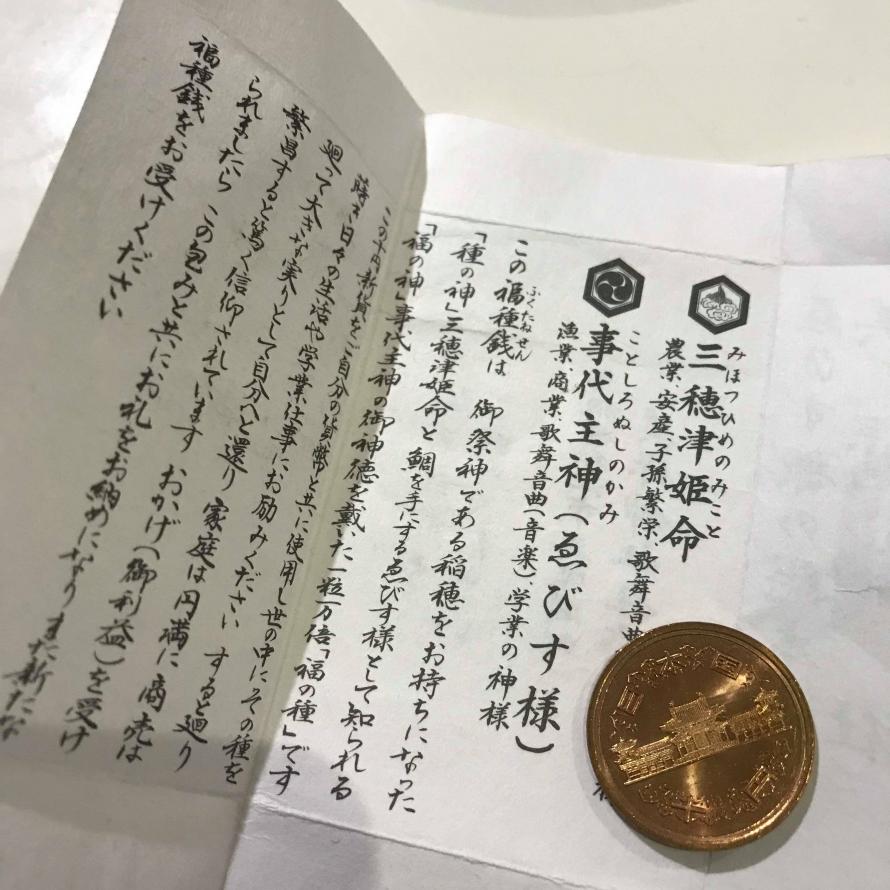 みほつひめのみこと
三穂津姫命
農業、安産、子孫繁栄、歌舞音曲
ことしろぬしのかみ
事代主神(ゑびす様)
漁業、商業、歌舞音曲(音楽)、学業の神様
ふくたねせん
この福種銭は 御祭神である稲穂をお持ちになった
「種の神」三穂津姫命と 鯛を手にするゑびす様として知られる
「福の神」事代主神の御神徳を戴いた一粒万倍「福の種」です
この十円新貨をご自分の貨幣と共に使用し世の中にその種を
蒔き日々の生活や学業仕事にお励みください すると廻り
廻って大きな実りとして自分へと還り 家庭は円満に商売は
繁昌すると篤く信仰されています おかげ(御利益)を受け
られましたら この包みと共にお札をお納めになりまた新たな
福種銭をお受けください
日本国
十円